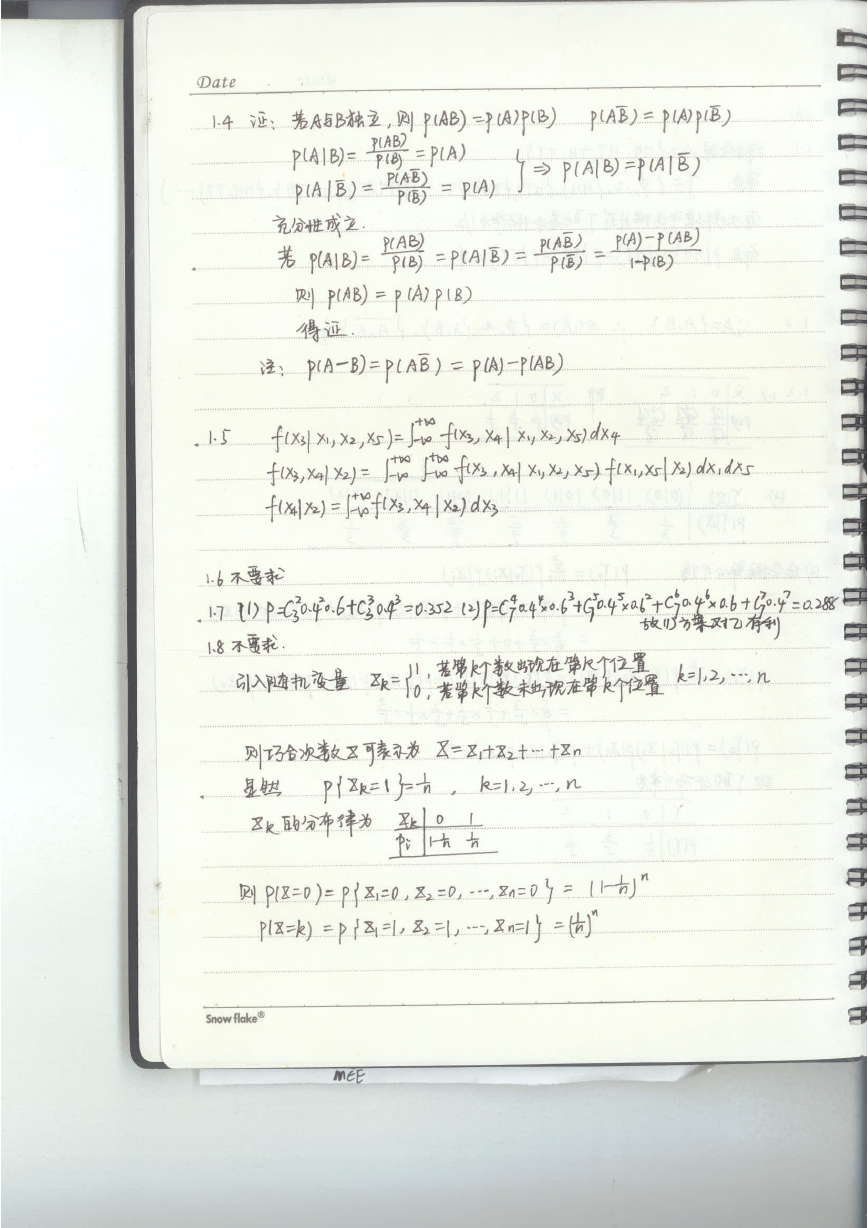 Date
1.4 证: 若A与B独立, 则 P(AB)=P(A)P(B) P(AB̅)=P(A)P(B̅)
P(A|B)= P(AB)/P(B) =P(A)
P(A|B̅)= P(AB̅)/P(B̅) = P(A) } ⇒ P(A|B)=P(A|B̅)
充分性成立.
若 P(A|B)= P(AB)/P(B) =P(A|B̅)= P(AB̅)/P(B̅) = P(A)-P(AB)/1-P(B)
则 P(AB)=P(A)P(B)
得证.
注: P(A-B)=P(AB̅)=P(A)-P(AB)
1.5 f(x₃|x₁,x₂,x₅)=∫₋∞⁺∞ f(x₃,x₄|x₁,x₂,x₅)dx₄
f(x₃,x₄|x₂)= ∫₋∞⁺∞ ∫₋∞⁺∞ f(x₃,x₄|x₁,x₂,x₅) f(x₁,x₅|x₂)dx₁dx₅
f(x₄|x₂)=∫₋∞⁺∞ f(x₃,x₄|x₂)dx₃
1.6 不要求
1.7 (1) P=C₃²0.4²0.6+C₃³0.4³=0.352 (2) P=C₇⁴0.4⁴×0.6³+C₇⁵0.4⁵×0.6²+C₇⁶0.4⁶×0.6+C₇⁷0.4⁷=0.288
故(1)方案对乙有利
1.8 不要求.
引入随机变量 X_k={1, 若第k个数出现在第k个位置
0, 若第k个数未出现在第k个位置 k=1,2,…,n
则巧合次数X可表示为 X=X₁+X₂+…+Xn
显然 P{X_k=1}=1/n , k=1,2,…,n
X_k的分布律为 X_k | 0 1
Pi | 1-1/n 1/n
则 P(X=0)=P{X₁=0,X₂=0,…,Xn=0}= (1-1/n)ⁿ
P(X=k)=P{X₁=1,X₂=1,…,Xn=1}=(1/n)ⁿ
Snowflake®
MEE